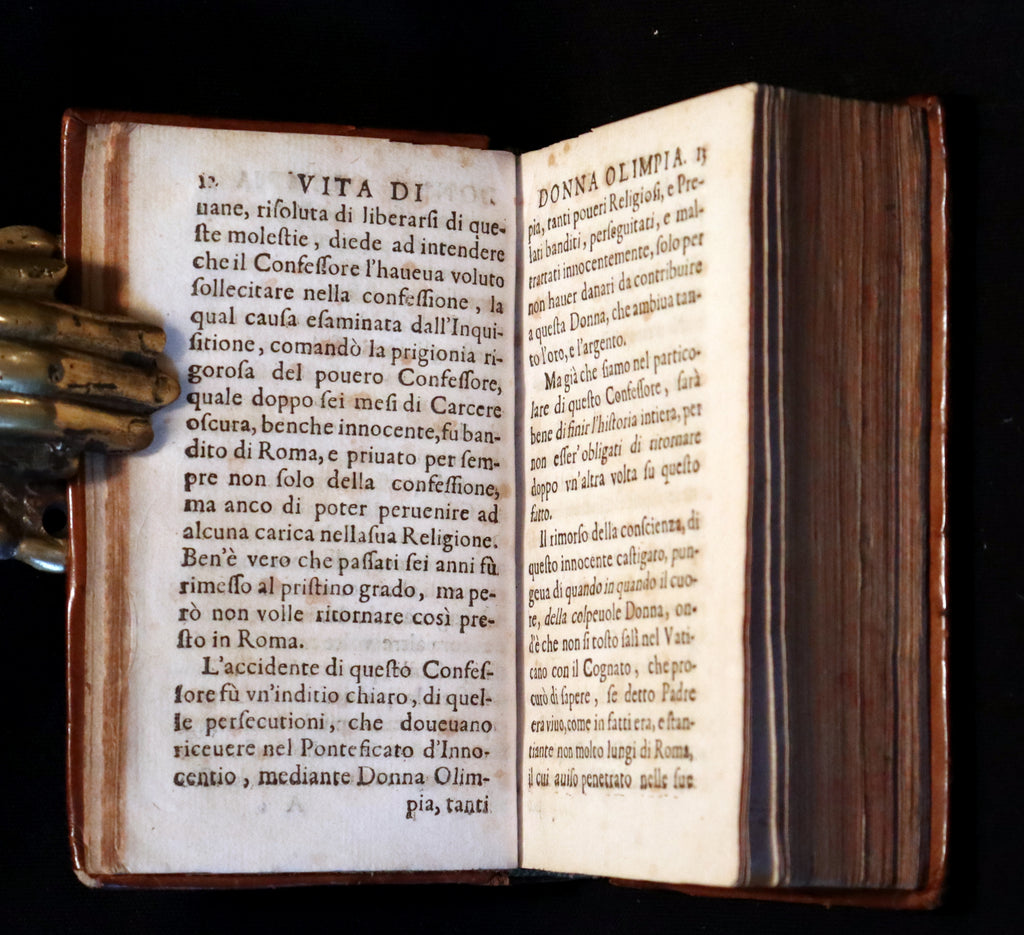 12 VITA DI
uane, riſoluta di liberarſi di que-
ſte moleſtie, diede ad intendere
che il Confeſſore l'haueua voluto
ſollecitare nella confeſſione, la
qual cauſa eſaminata dall'Inqui-
ſitione, comandò la prigionia ri-
goroſa del pouero Confeſſore,
quale doppo ſei meſi di Carcere
oſcura, benche innocente, fu ban-
dito di Roma, e priuato per ſem-
pre non ſolo della confeſſione,
ma anco di poter peruenire ad
alcuna carica nella ſua Religione.
Ben'è vero che paſſati ſei anni fù
rimeſſo al priſtino grado, ma pe-
rò non volle ritornare così pre-
ſto in Roma.
L'accidente di queſto Confeſ-
ſore fù vn'inditio chiaro, di quel-
le perſecutioni, che doueuano
riceuere nel Ponteficato d'Inno-
centio, mediante Donna Olim-
pia, tanti
DONNA OLIMPIA. 13
pia, tanti poueri Religioſi, e Pre-
lati banditi, perſeguitati, e mal-
trattati innocentemente, ſolo per
non hauer danari da contribuire
a queſta Donna, che ambiua tan-
to l'oro, e l'argento.
Ma già che ſiamo nel partico-
lare di queſto Confeſſore, ſarà
bene di finir l'hiſtoria intiera, per
non eſſer' obligati di ritornare
doppo vn'altra volta ſu queſto
fatto.
Il rimorſo della conſcienza, di
queſto innocente caſtigato, pun-
geua di quando in quando il cuo-
re, della colpeuole Donna, on-
d'è che non ſi toſto ſalì nel Vati-
cano con il Cognato, che pro-
curò di ſapere, ſe detto Padre
era viuo, come in fatti era, e ſtan-
tiante non molto lungi di Roma,
il cui auiſo penetrato nelle ſue